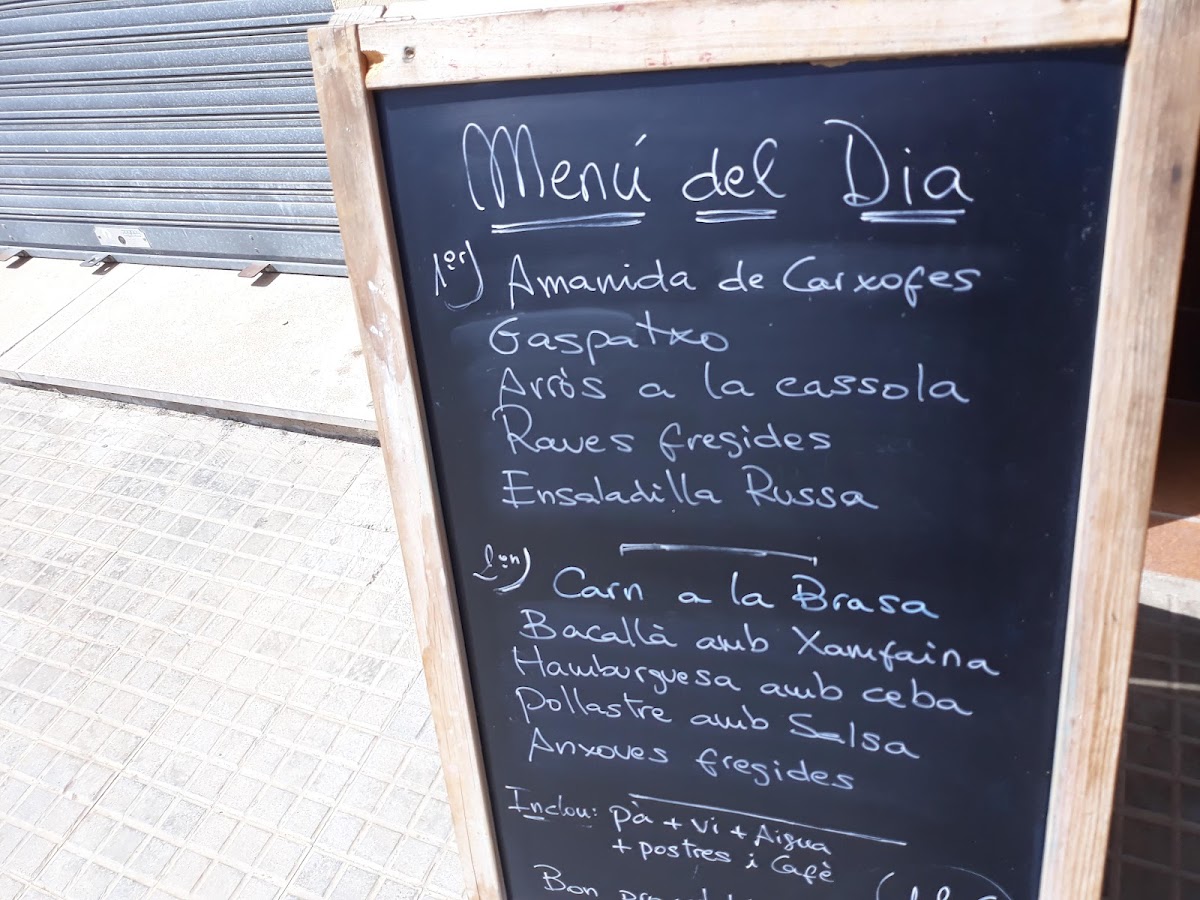 Menú del Dia
1er) Amanida de Carxofes
Gaspatxo
Arròs a la cassola
Raves fregides
Ensaladilla Russa
2on) Carn a la Brasa
Bacallà amb Xamfaina
Hamburguesa amb ceba
Pollastre amb Salsa
Anxoves fregides
Inclou: pà + vi + Aigua
+ postres i Cafè
Bon